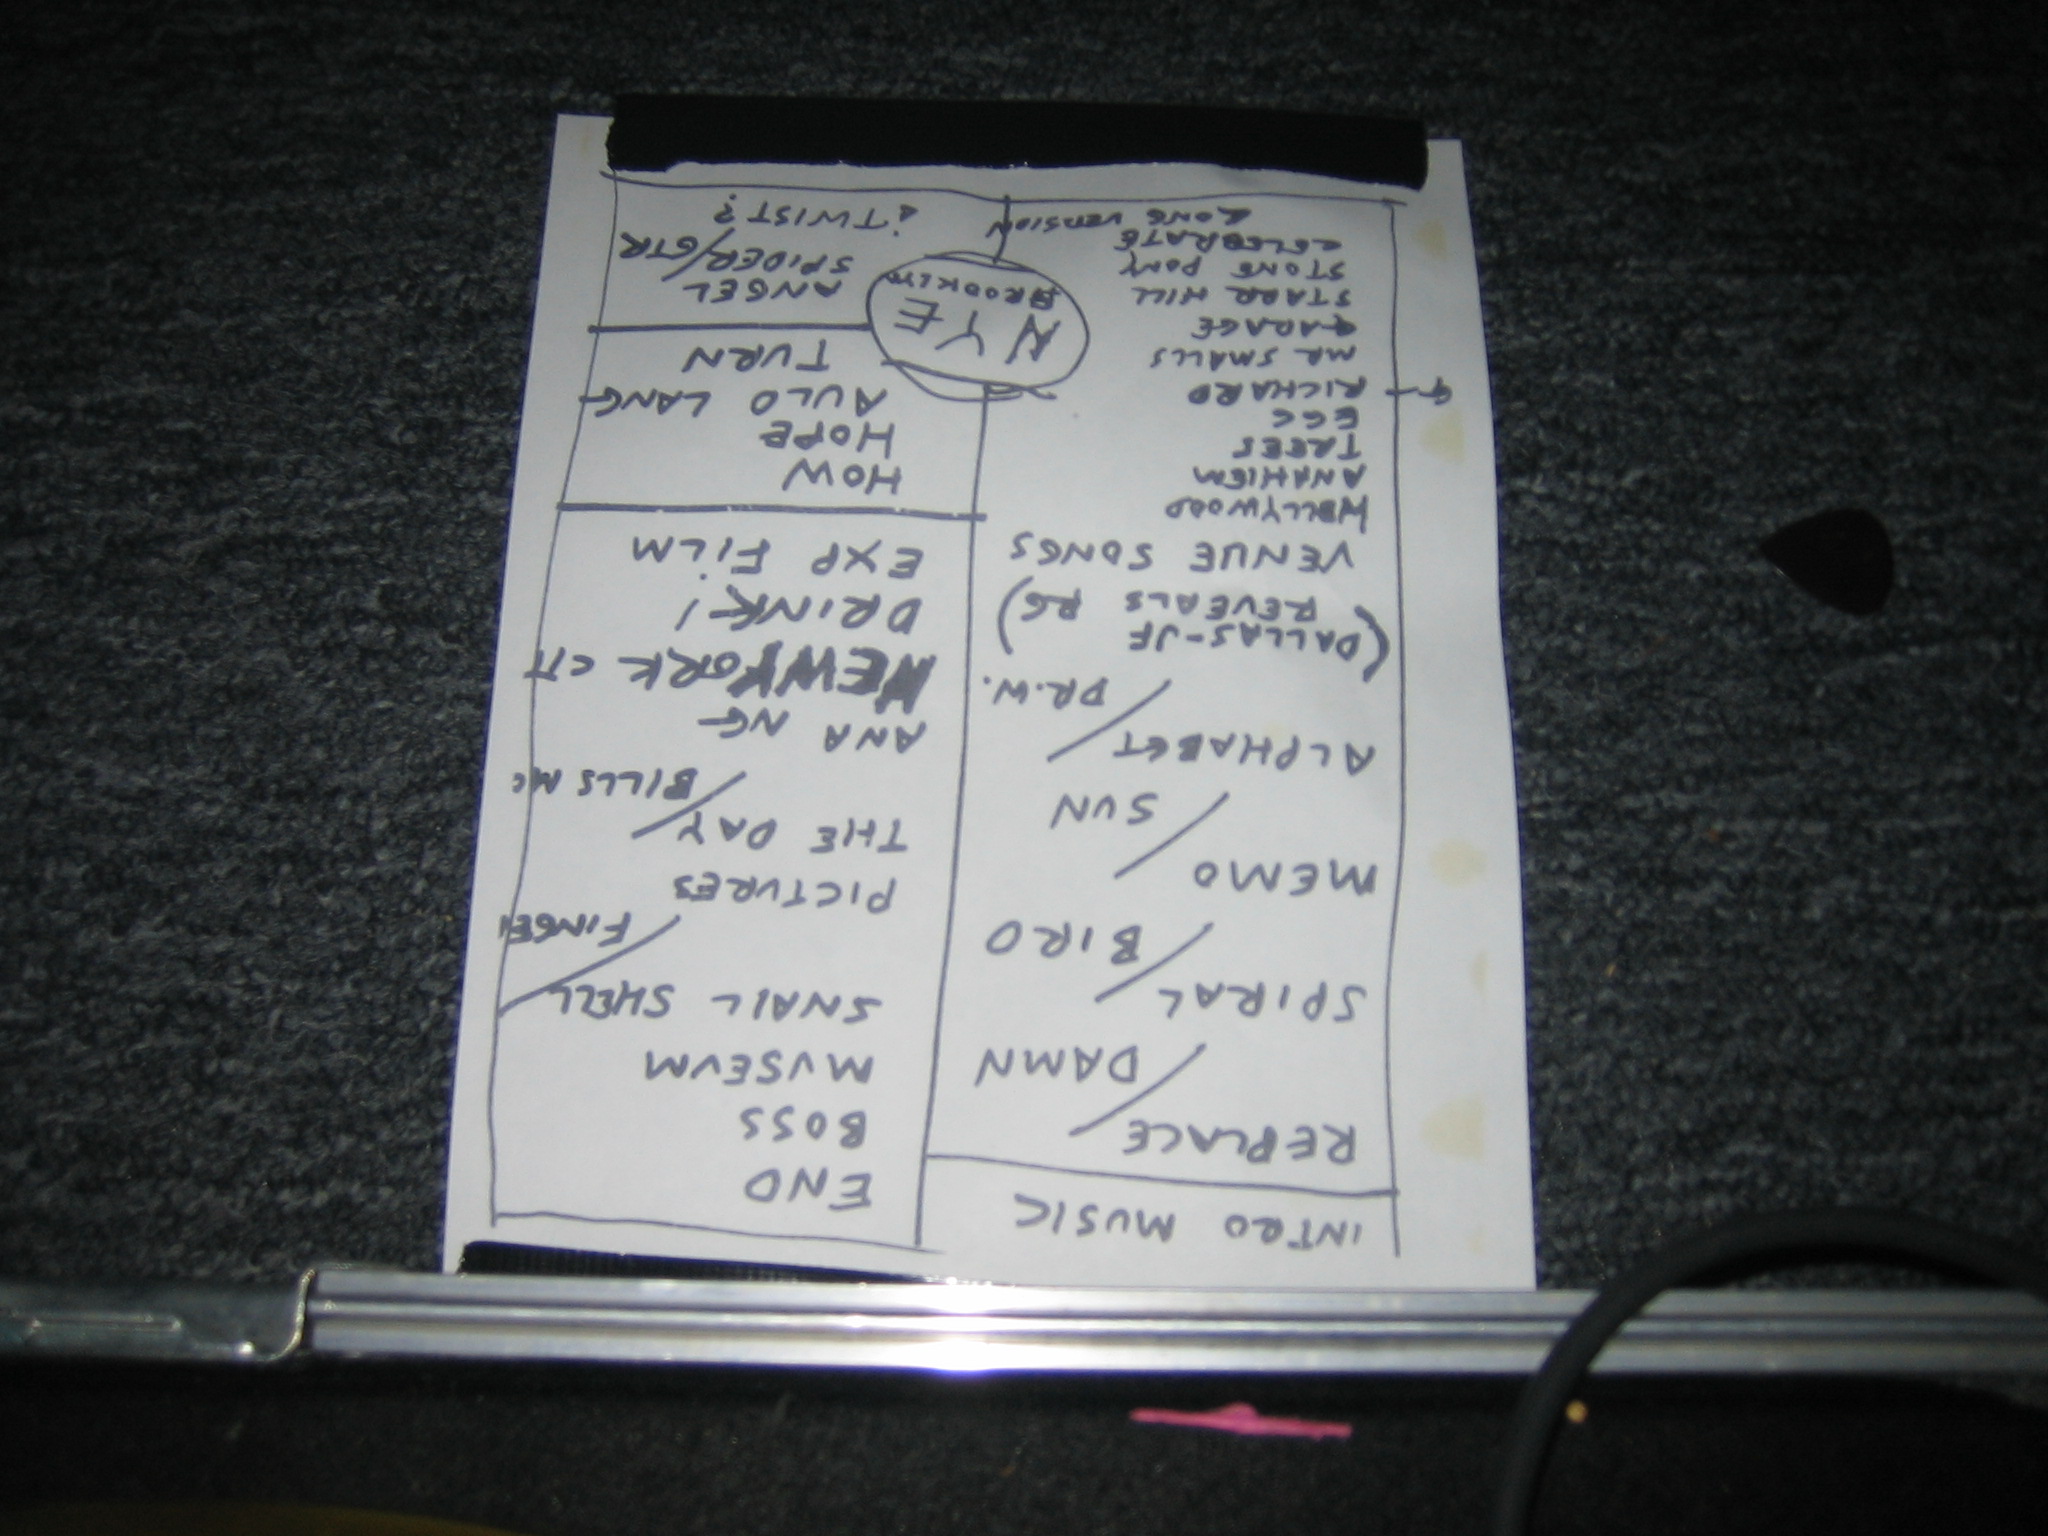 INTRO MUSIC
REPLACE / DAMN
SPIRAL / BIRO
MEMO / SUN
ALPHABET / DR. W.
(DALLAS-JF
REVEALS RG)
VENUE SONGS
HOLLYWOOD
ANAHIEM
TREES
EGG
RICHARD
MR SMALLS
GARAGE
STARR HILL
STONE PONY
CELEBRATE
LONG VERSION
NYE
BROOKLYN
END
BOSS
MUSEUM
SNAIL SHELL / FINGER
PICTURES
THE DAY / BILLS MC
ANA NG
NEW YORK CIT
DRINK!
EXP FILM
HOW
HOPE
AULD LANG
TURN
ANGEL
SPIDER/GTR
¿TWIST?